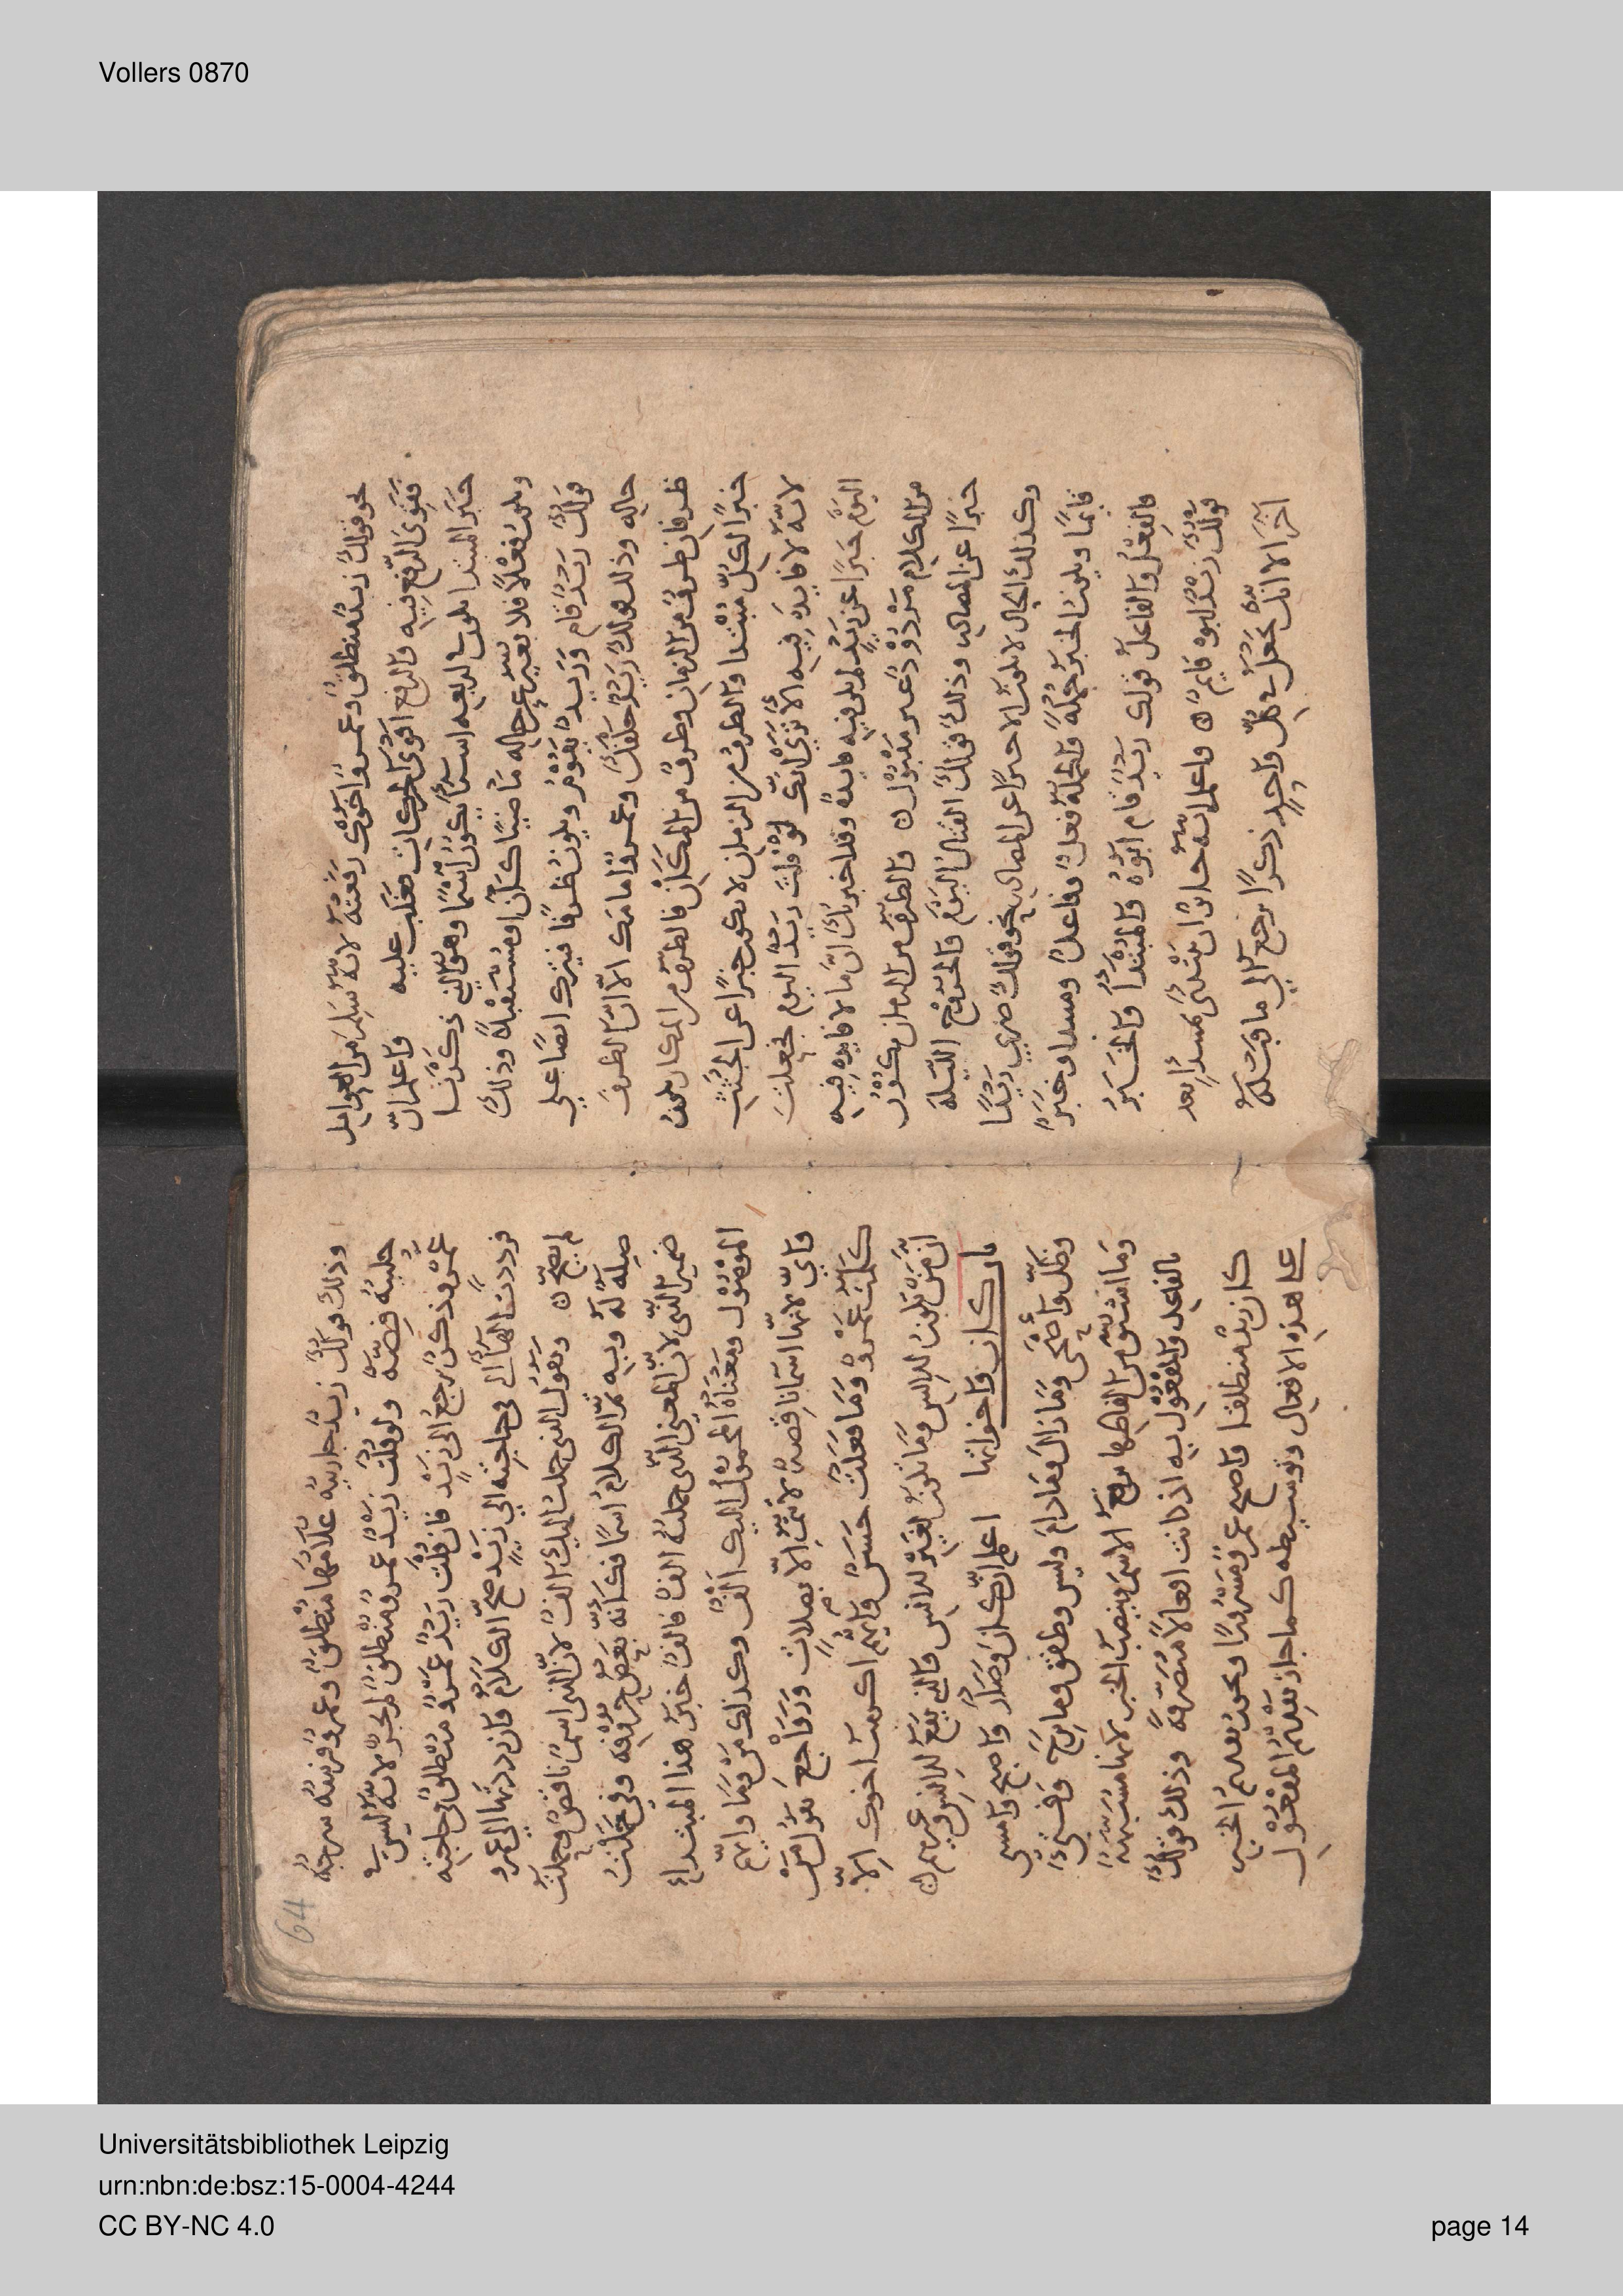 Vollers 0870
نحو قولك زيدٌ منطلقٌ وعمروٌ اخوك رفعته لانه سلم من العوامل
فقوي الرفع فيه والرفع اقوى الحركات فغلب عليه واعلم ان
خبر المبتدا يكون اربعه اسما يكون اسما وهو الذي ذكرنا
ويكون فعلا فلا يغير عن حاله ماضيا كان او مستقبلا وذلك
قولك زيد قام وزيد يقوم ويكون ظرفا فيترك ايضا على
حاله وذلك قولك زيد خلفك وعمرو امامك الا ان الظرف
ظرفان ظرف من الزمان وظرف من المكان فالظرف من المكان يكون
خبرا لكل مبتدا والظرف من الزمان لا يكون خبرا عن الجثث
لانه لا فايده فيه الا ترى انك لو قلت زيد اليوم فجعلت
اليوم خبرا عن زيد لم يكن فيه فايدة وقد اخبرتك ان ما لا فايده فيه
من الكلام مردود غير مقبول ن والظرف من الزمان يكون
خبرا عن المصادر وذلك قولك القتال اليوم والخروج الليلة
وكذلك الحال لا تكون الا خبرا عن المصادر نحو قولك ضربي زيدا
قايما ويكون الخبر جملة والجملة فعل وفاعل ومبتدا وخبر
فالفعل والفاعل قولك زيد قام ابوه والمبتدا والخبر
قولك زيد ابوه قايم ن واعلم انه جايز ان تبتدئ بمبتدا بعد
اخر الا انك تجعل في كل واحد ذكرا يرجع الى ما قبله
64
وذلك قولك زيد جاريته غلامها منطلق وعمرو فرسه سرجه
حليته فضة ولو قلت زيد عمرو منطلق لم يجز لانه ليس في
عمرو ذكر يرجع الى زيد فان قلت زيد عمرو منطلق في حاجته
فرددت الهاء التي في حاجته الى زيد صح الكلام وان رددتها الى عمرو
لم يصح ن وتقول الذي حملت اليك الف لان الذي اسما ناقص وحملت
صلة له وبه تم الكلام اسما فكانه بعض حروفه وفي حملت
ضمير الذي لان المعنى الذي حملته الف فالف خبر هذا المبتداء
الموصول ومعناه المحمول اليك الف وكذلك من وما وايهم
واي لانها اسما ناقصة لا تتم الا بصلات وراجع تقول من
كلمت عمرو وما فعلت حسن وايهم اكرمت اخوك الا
ان من تكون للناس وما تكون لغير الناس والذي يقع للناس وغيرهم ن
باب كان واخواتها اعلم ان كان وصار واصبح وامسى
وظل واضحى وما زال وما دام وليس وطفق وما برح وفتئ
وما اشتق من لفظها يرفع الاسم وينصب الخبر لانها مشبهة
بالفاعل والمفعول به اذ كانت افعالا متصرفة وذلك قولك
كان زيد منطلقا واصبح عمرو مسرورا ويجوز تقديم الخبر
على هذه الافعال وتوسيطه كما جاز تقديم المفعول
Universitätsbibliothek Leipzig
urn:nbn:de:bsz:15-0004-4244
CC BY-NC 4.0
page 14